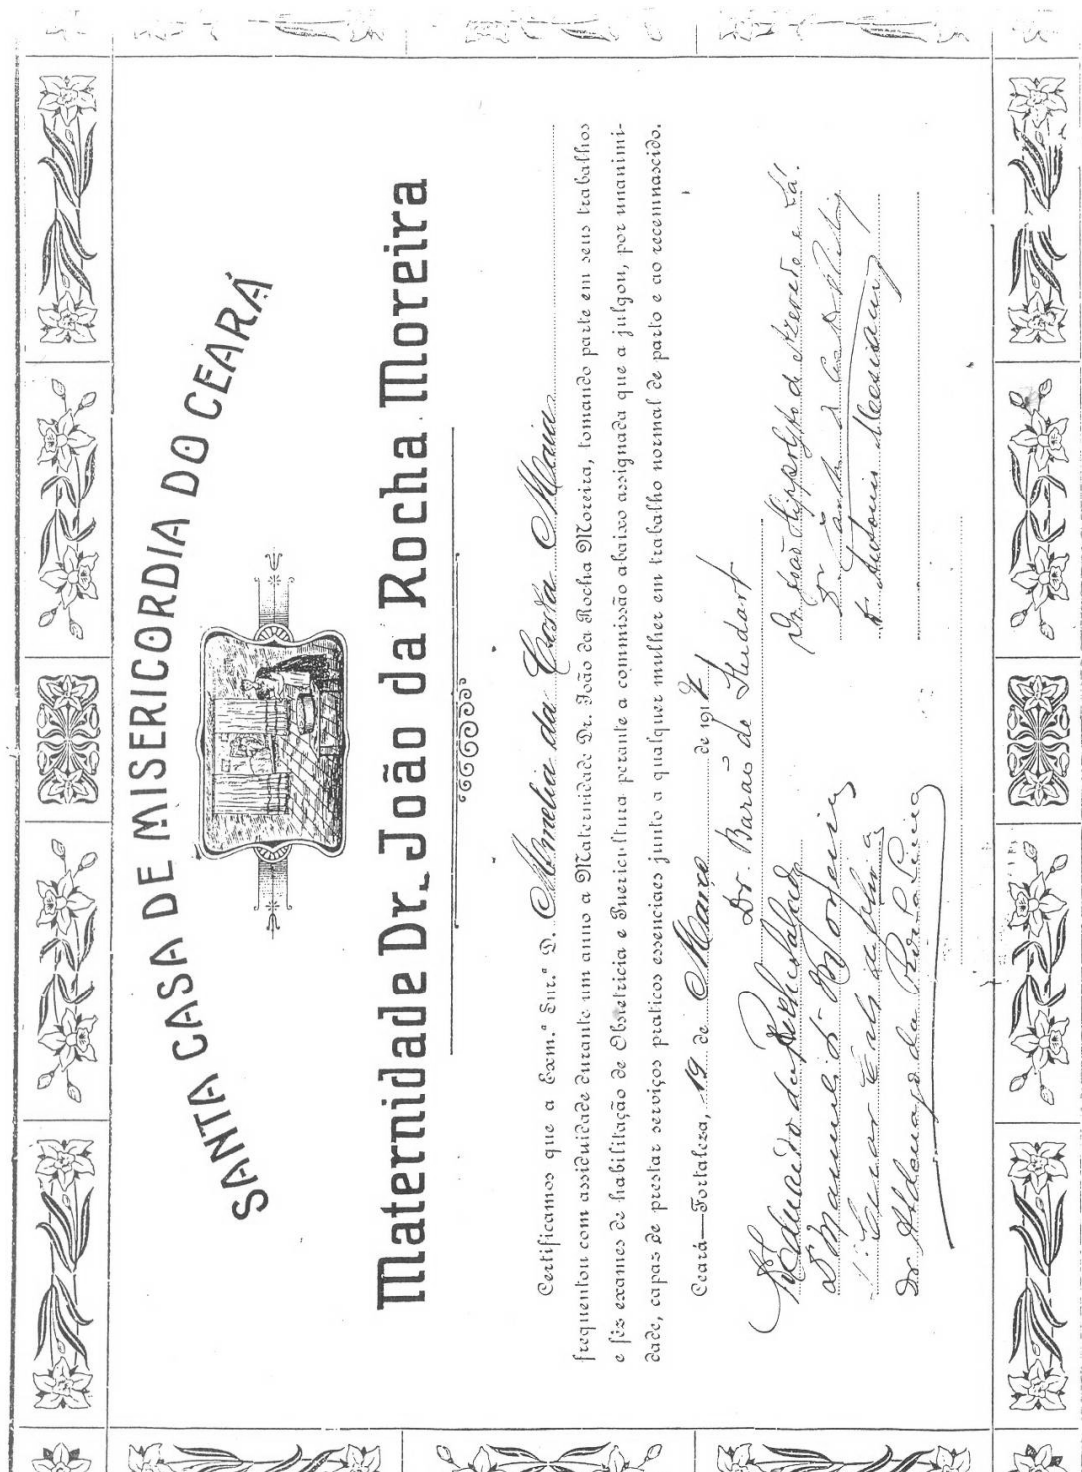 SANTA CASA DE MISERICORDIA DO CEARÁ
Maternidade Dr. João da Rocha Moreira
Certificamos que a Exm.ª Snr.ª D. Amelia da Costa Maia
frequentou com assiduidade durante um anno a Maternidade Dr. João da Rocha Moreira, tomando parte em seus trabalhos
e fez exames de habilitação de Obstetricia e Puericultura perante a commissão abaixo assignada que a julgou, por unanimi-
dade, capaz de prestar serviços praticos essenciaes junto a qualquer mulher em trabalho normal de parto e ao recemnascido.
Ceará—Fortaleza, 19 de Março de 191
Dr. Barão de Studart
Eduardo da Rocha Salgado
Dr. João Hippolyto de Azevedo e Sá.
Dr Manuel
Cesar Cals
Antonio
Dr Aldenago da Rocha